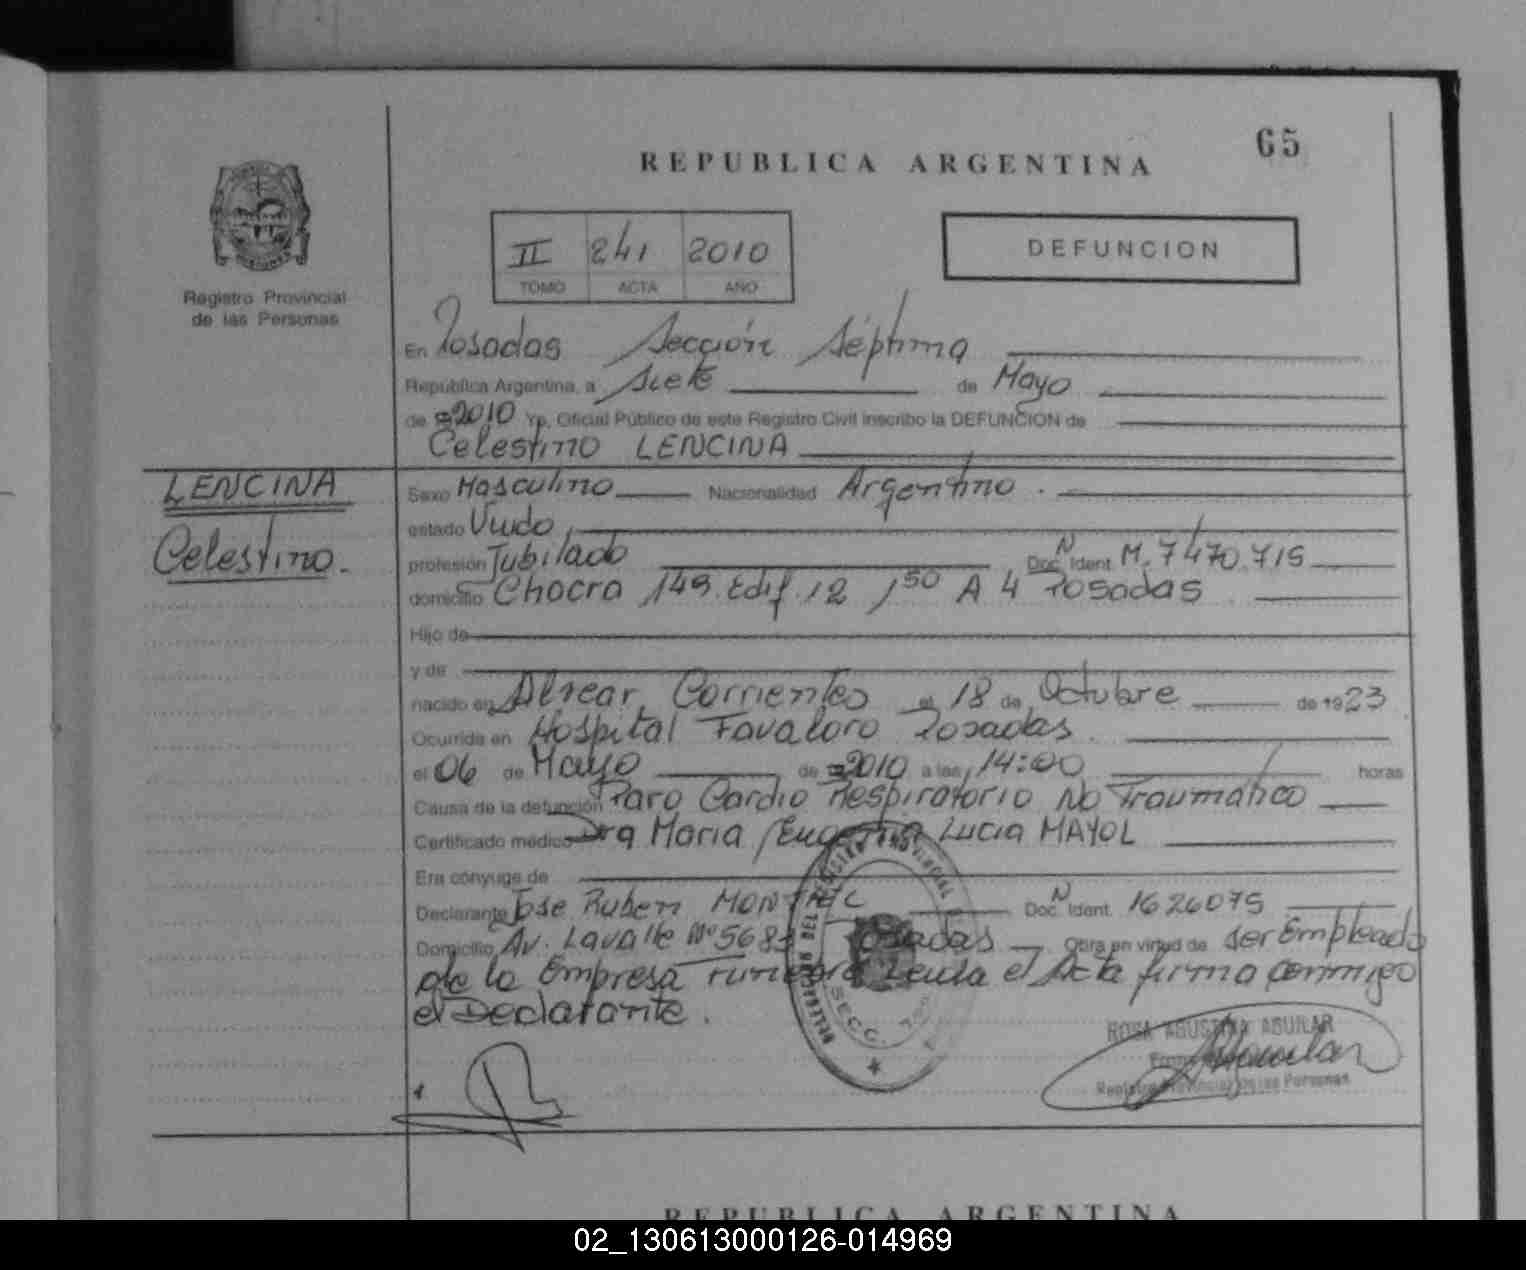 65
REPUBLICA ARGENTINA
II 241 2010
TOMO ACTA AÑO
DEFUNCION
Registro Provincial
de las Personas
En Posadas Sección Séptima
República Argentina, a Siete de Mayo
de 2010 Yo, Oficial Público de este Registro Civil inscribo la DEFUNCION de
Celestino LENCINA
LENCINA
Celestino.
Sexo Masculino Nacionalidad Argentino.
estado Viudo
profesión Jubilado Doc. N Ident. M. 7470.715
domicilio Chacra 149. Edif. 12 1so A 4 Posadas
Hijo de
y de
nacido en Alvear, Corrientes el 18 de Octubre de 1923
Ocurrida en Hospital Favaloro Posadas.
el 06 de Mayo de 2010 a las 14:00 horas
Causa de la defunción Paro Cardio Respiratorio No Traumático
Certificado médico Dra Maria Eugenia Lucia MAYOL
Era cónyuge de
Declarante Jose Ruben Doc. N Ident. 1626075
Domicilio Av. Lavalle Nº Posadas Obra en virtud de ser Empleado
de la Empresa el Acta firma conmigo
el Declarante.
DELEGACION DEL REGISTRO PROVINCIAL
SECC.
ROSA AGUSTINA AGUILAR
Registro Provincial de las Personas
REPUBLICA ARGENTINA
02_130613000126-014969